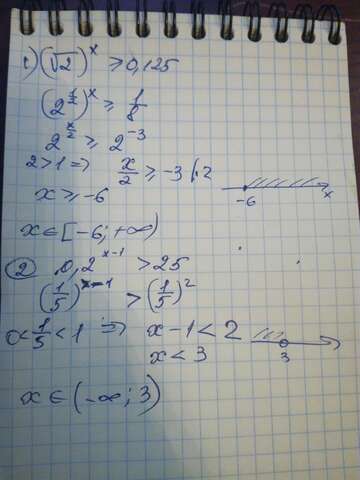 1) (√2)^x ⩾ 0,125
(2^(1/2))^x ⩾ 1/8
2^(x/2) ⩾ 2^(-3)
2>1 ⇒ x/2 ⩾ -3 |·2
x ⩾ -6
-6 x
x ∈ [-6; +∞)
② 0,2^(x-1) > 25
(1/5)^(x-1) > (1/5)^2
0<1/5<1 ⇒ x-1<2
x<3
3
x ∈ (-∞; 3)